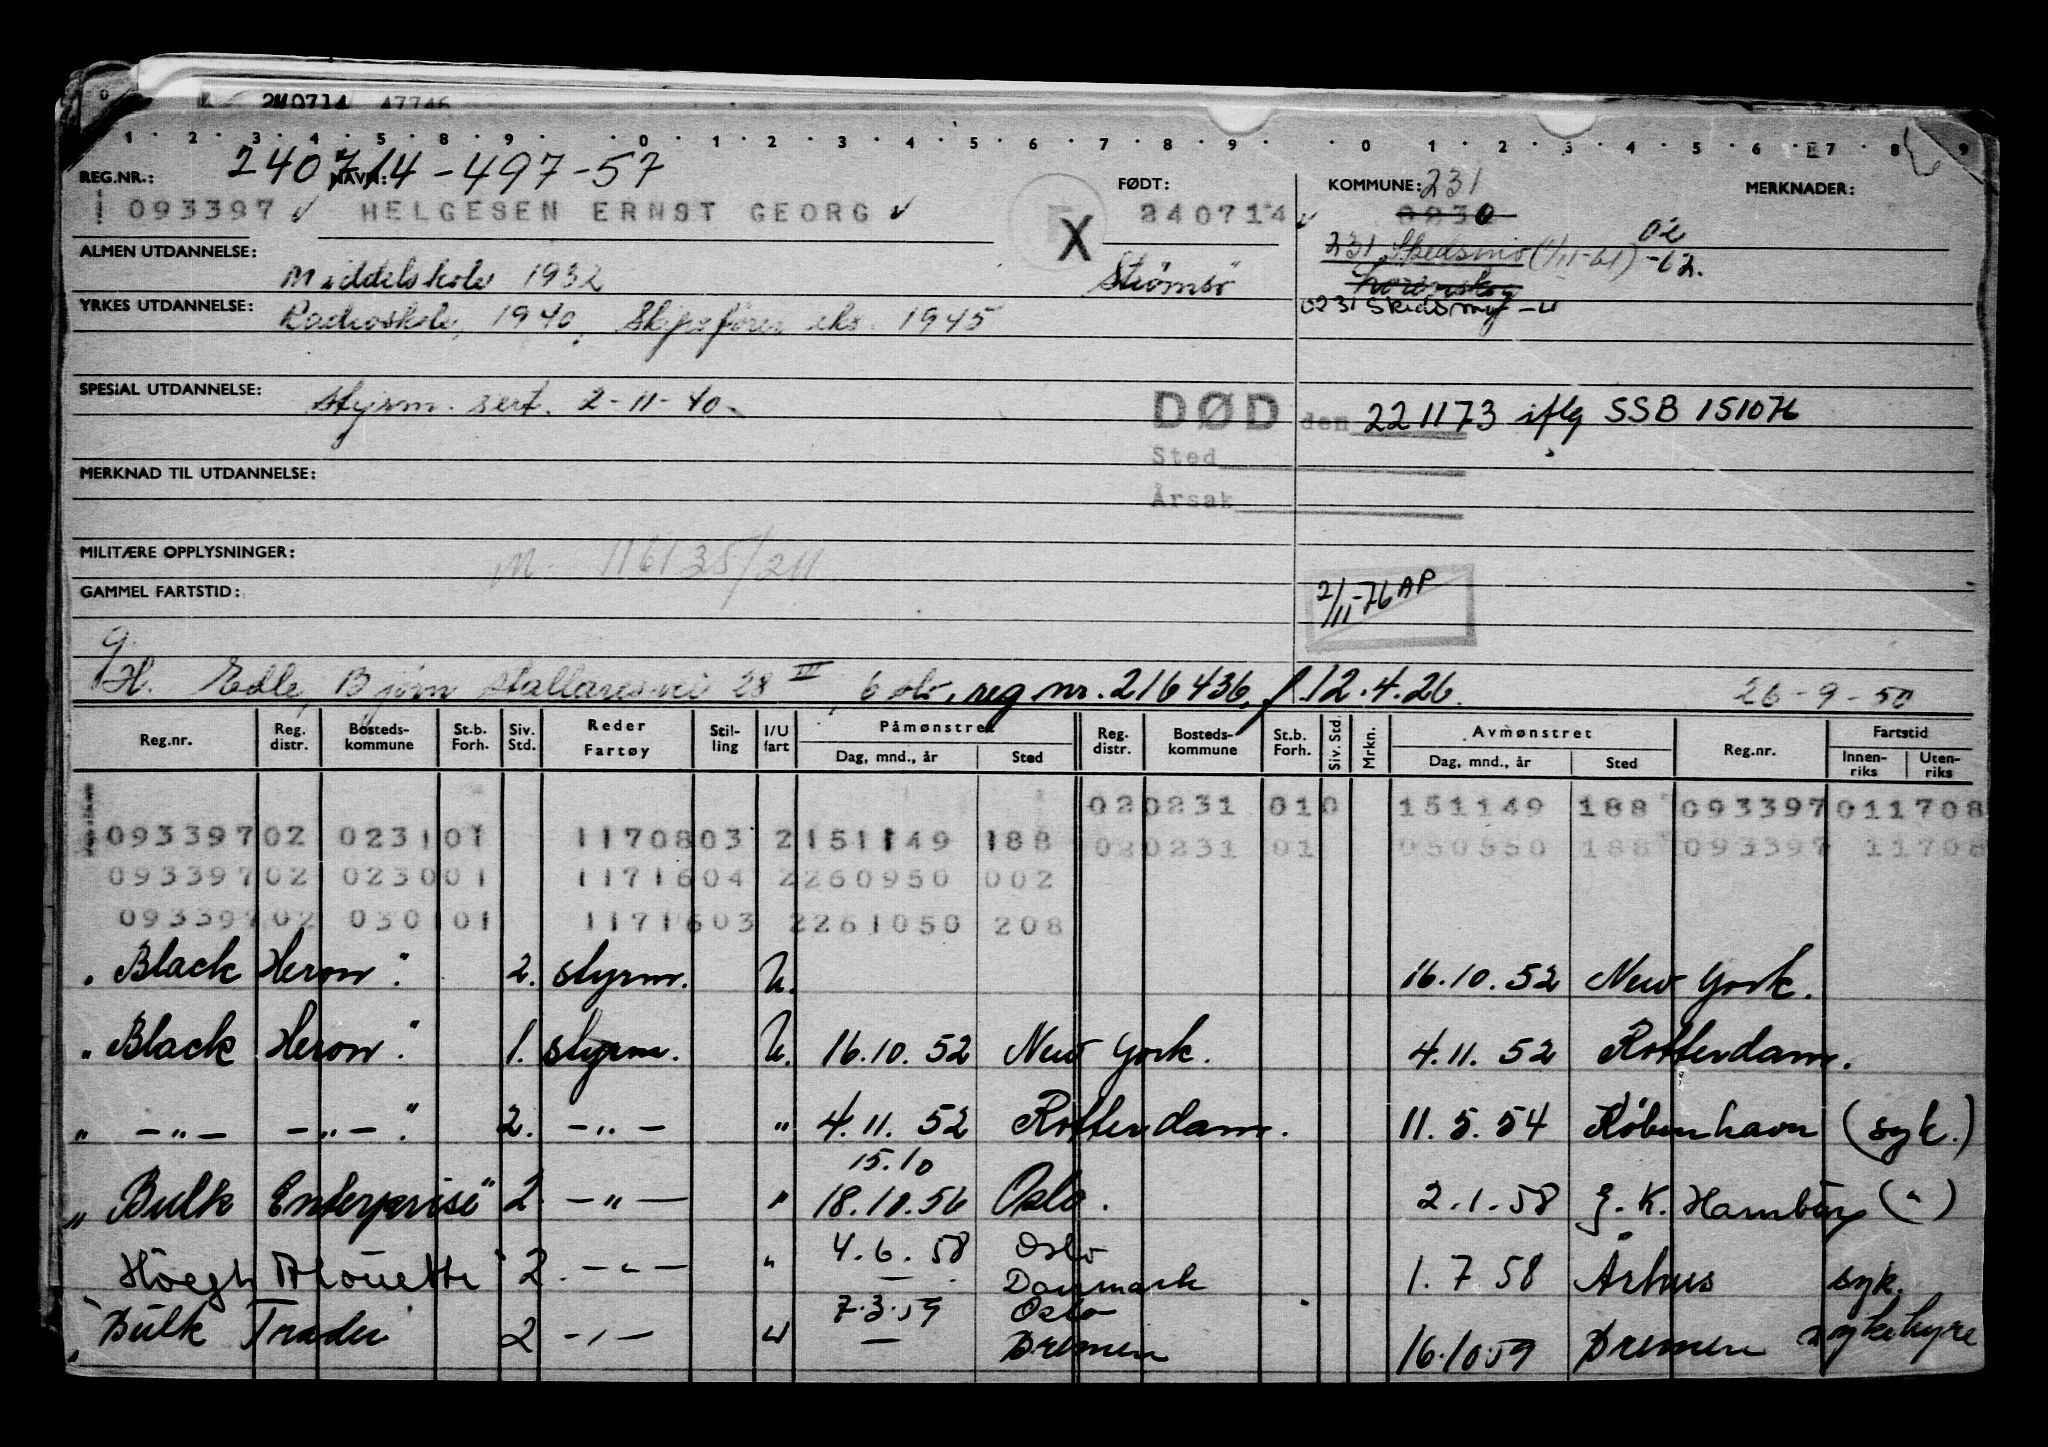 240714 47746
1 2 3 4 5 6 7 8 9 0 1 2 3 4 5 6 7 8 9 0 1 2 3 4 5 6 7 8 9
240714-497-57
REG.NR.: NAVN: FØDT: KOMMUNE: 231 MERKNADER:
093397 ✓ HELGESEN ERNST GEORG ✓ X 240714 ✓ 0230
ALMEN UTDANNELSE: Middelskole 1932 Strømsø 231 Skedsmo (1/11-61) 02 -62.
Lørenskog
YRKES UTDANNELSE: Radioskole, 1940, Skipsfører eks. 1945 0231 Skedsmo -U
SPESIAL UTDANNELSE: Styrm. sert. 2-11-40. DØD den 221173 iflg SSB 151076
MERKNAD TIL UTDANNELSE: Sted
Årsak
MILITÆRE OPPLYSNINGER: M. 116135/211
GAMMEL FARTSTID: 2/11-76 AP
g.
H. Edle, Bjørn Stallaresvei 28 III, Oslo, reg nr. 216436, f. 12.4.26. 26-9-50
Reg.nr. Reg. distr. Bosteds-kommune St.b. Forh. Siv. Std. Reder Fartøy Stil-ling I/U fart Påmønstret Dag, mnd., år Sted Reg. distr. Bosteds-kommune St.b. Forh. Siv. Std. Mrkn. Avmønstret Dag, mnd., år Sted Reg.nr. Fartstid Innen-riks Uten-riks
020231 010 151149 188 093397 011708
093397 02 023101 1170803 2 151149 188 020231 01 050550 188 093397 11708
093397 02 023001 1171604 2 260950 002
093397 02 030101 1171603 2 261050 208
"Black Heron". 2. styrm. U. 16.10.52 New York.
"Black Heron". 1. styrm. U. 16.10.52 New York. 4.11.52 Rotterdam.
" -"- -"-". 2. -"- " 4.11.52 Rotterdam. 11.5.54 København (syk.)
15.10
"Bulk Enterprise" 2. -"- " 18.10.56 Oslo. 2.1.58 G.K. Hamburg (")
4.6.58 Oslo
Höegh Silouette" 2. -"- " — Danmark 1.7.58 Århus syk.
7.3.59 Oslo
"Bulk Trader 2 -"- U — Bremen 16.10.59 Bremen sykehyre